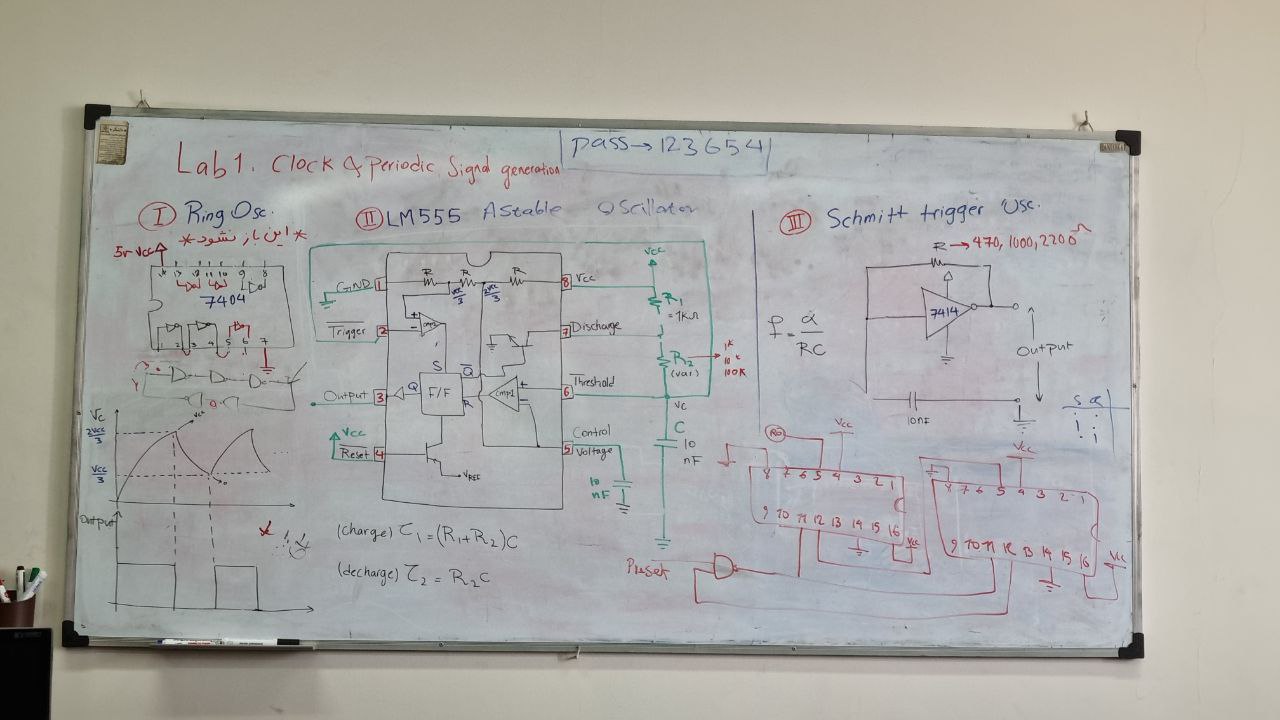 pass→123654
Lab1. Clock & periodic Signal generation
I Ring Osc.
* این باز نشود *
5v Vcc
14 13 12 11 10 9 8
7404
1 2 3 4 5 6 7
Vc
2Vcc/3
Vcc/3
Vcc
0
Output
II LM555 Astable Oscillator
GND 1
Trigger 2
Output 3
Vcc
Reset 4
R R R
Vcc/3 2Vcc/3
cmp2
S
Q F/F Q
R
cmp1
VREF
8 Vcc
7 Discharge
6 Threshold
5 Control Voltage
10 nF
Vcc
R1 = 1KΩ
R2 (var)
1k
10k
100K
Vc
C
10 nF
(charge) τ1 = (R1+R2)C
(decharge) τ2 = R2C
III Schmitt trigger Osc.
R → 470, 1000, 2200 Ω
7414
f = α/RC
Output
10nF
Vcc
8 7 6 5 4 3 2 1
9 10 11 12 13 14 15 16
Vcc
Vcc
8 7 6 5 4 3 2 1
9 10 11 12 13 14 15 16
Vcc
Preset